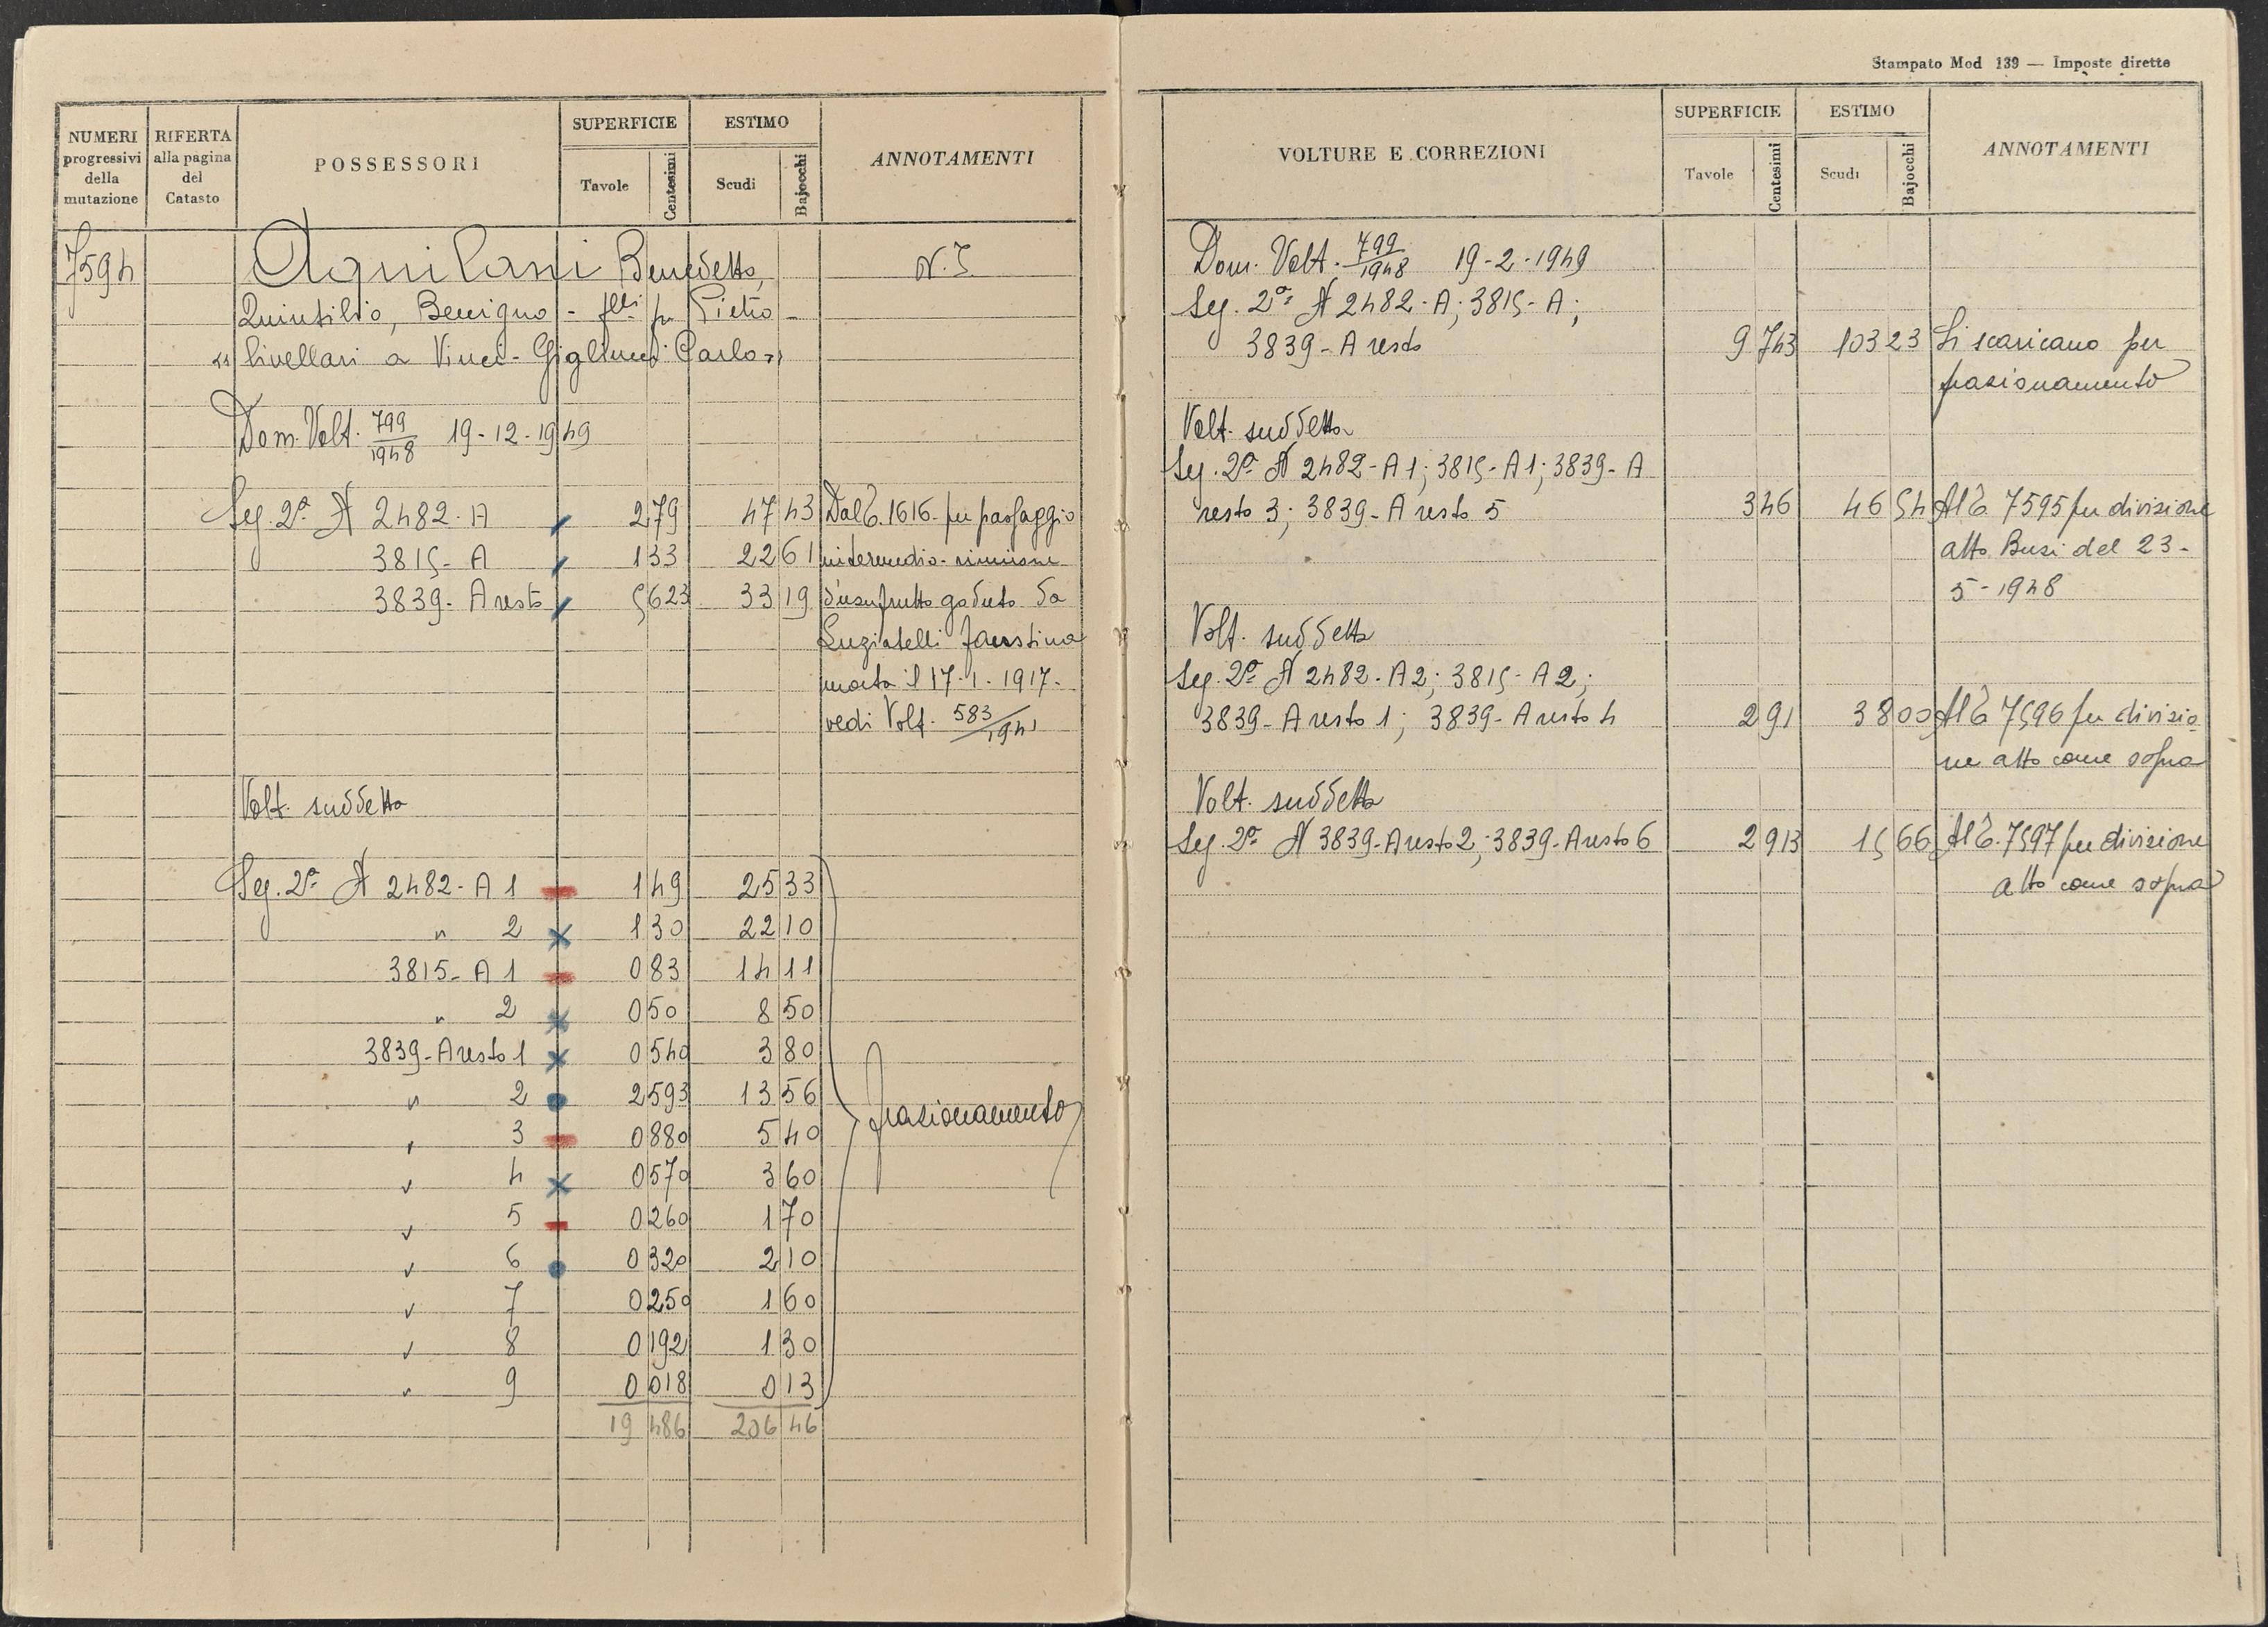 NUMERI progressivi della mutazione
RIFERTA alla pagina del Catasto
POSSESSORI
SUPERFICIE
Tavole
Centesimi
ESTIMO
Scudi
Bajocchi
ANNOTAMENTI
7594 Aquilani Benedetto, N. S.
Quintilio, Benigno - flli fu Pietro -
"livellari a Vinci-Gigliucci Carlo"
Dom. Volt. 799/1948 19-12-1949
Seg. 2ª N 2482-A 2 79 47 43 Dal C. 1616 - per passaggio
3815-A 1 33 22 61 intermedio - riunione
3839-A resto 5 623 33 19 d'usufrutto goduto da
Luziatelli Faustina
morta il 17-1-1917-
vedi Volt. 583/1941
Volt. suddetta
Seg. 2ª N 2482-A 1 1 49 25 33
" 2 1 30 22 10
3815-A 1 0 83 14 11
" 2 0 50 8 50
3839-A resto 1 0 540 3 80
" 2 2 593 13 56 frazionamento
" 3 0 880 5 40
" 4 0 570 3 60
" 5 0 260 1 70
" 6 0 320 2 10
" 7 0 250 1 60
" 8 0 192 1 30
" 9 0 018 0 13
19 486 206 46
Stampato Mod 139 — Imposte dirette
VOLTURE E CORREZIONI
SUPERFICIE
Tavole
Centesimi
ESTIMO
Scudi
Bajocchi
ANNOTAMENTI
Dom. Volt. 799/1948 19-2-1949
Seg. 2ª N 2482-A; 3815-A;
3839-A resto 9 743 103 23 Si scaricano per
frazionamento
Volt. suddetta
Seg. 2ª N 2482-A1; 3815-A1; 3839-A
resto 3; 3839-A resto 5 3 46 46 54 Al C. 7595 per divisione
atto Busi del 23-
5-1948
Volt. suddetta
Seg. 2ª N 2482-A2; 3815-A2;
3839-A resto 1; 3839-A resto 4 2 91 38 00 Al C. 7596 per divisio
ne atto come sopra
Volt. suddetta
Seg. 2ª N 3839-A resto 2; 3839-A resto 6 2 913 15 66 Al C. 7597 per divisione
atto come sopra